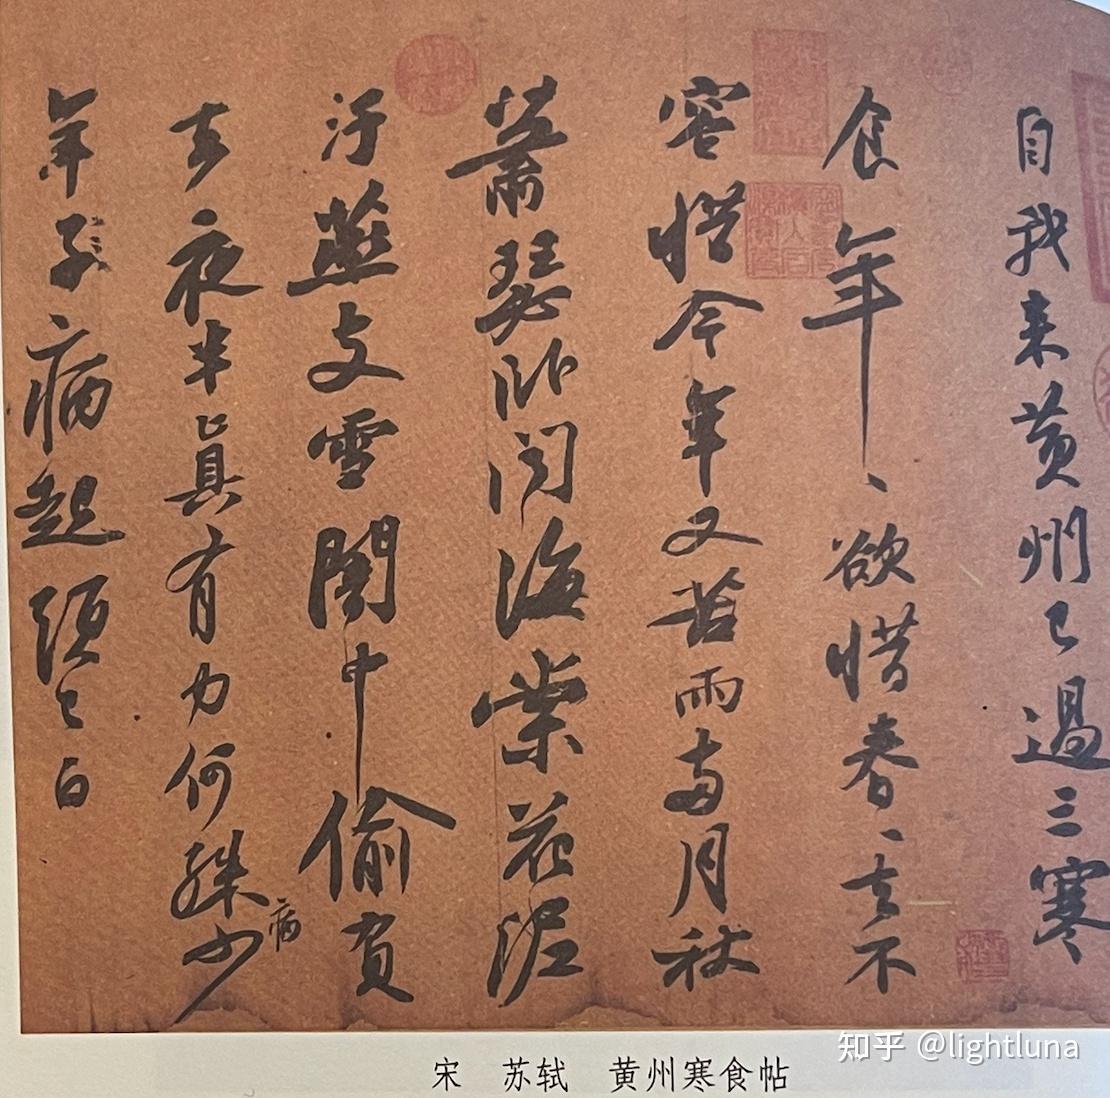 自我来黄州已過三寒
食年、欲惜春、去不
容惜今年又苦雨兩月秋
蕭瑟卧聞海棠花泥
汙燕支雪闇中偷負
去夜半真有力何殊少
病
年子病起頭已白
宋 苏轼 黄州寒食帖
知乎 @lightluna